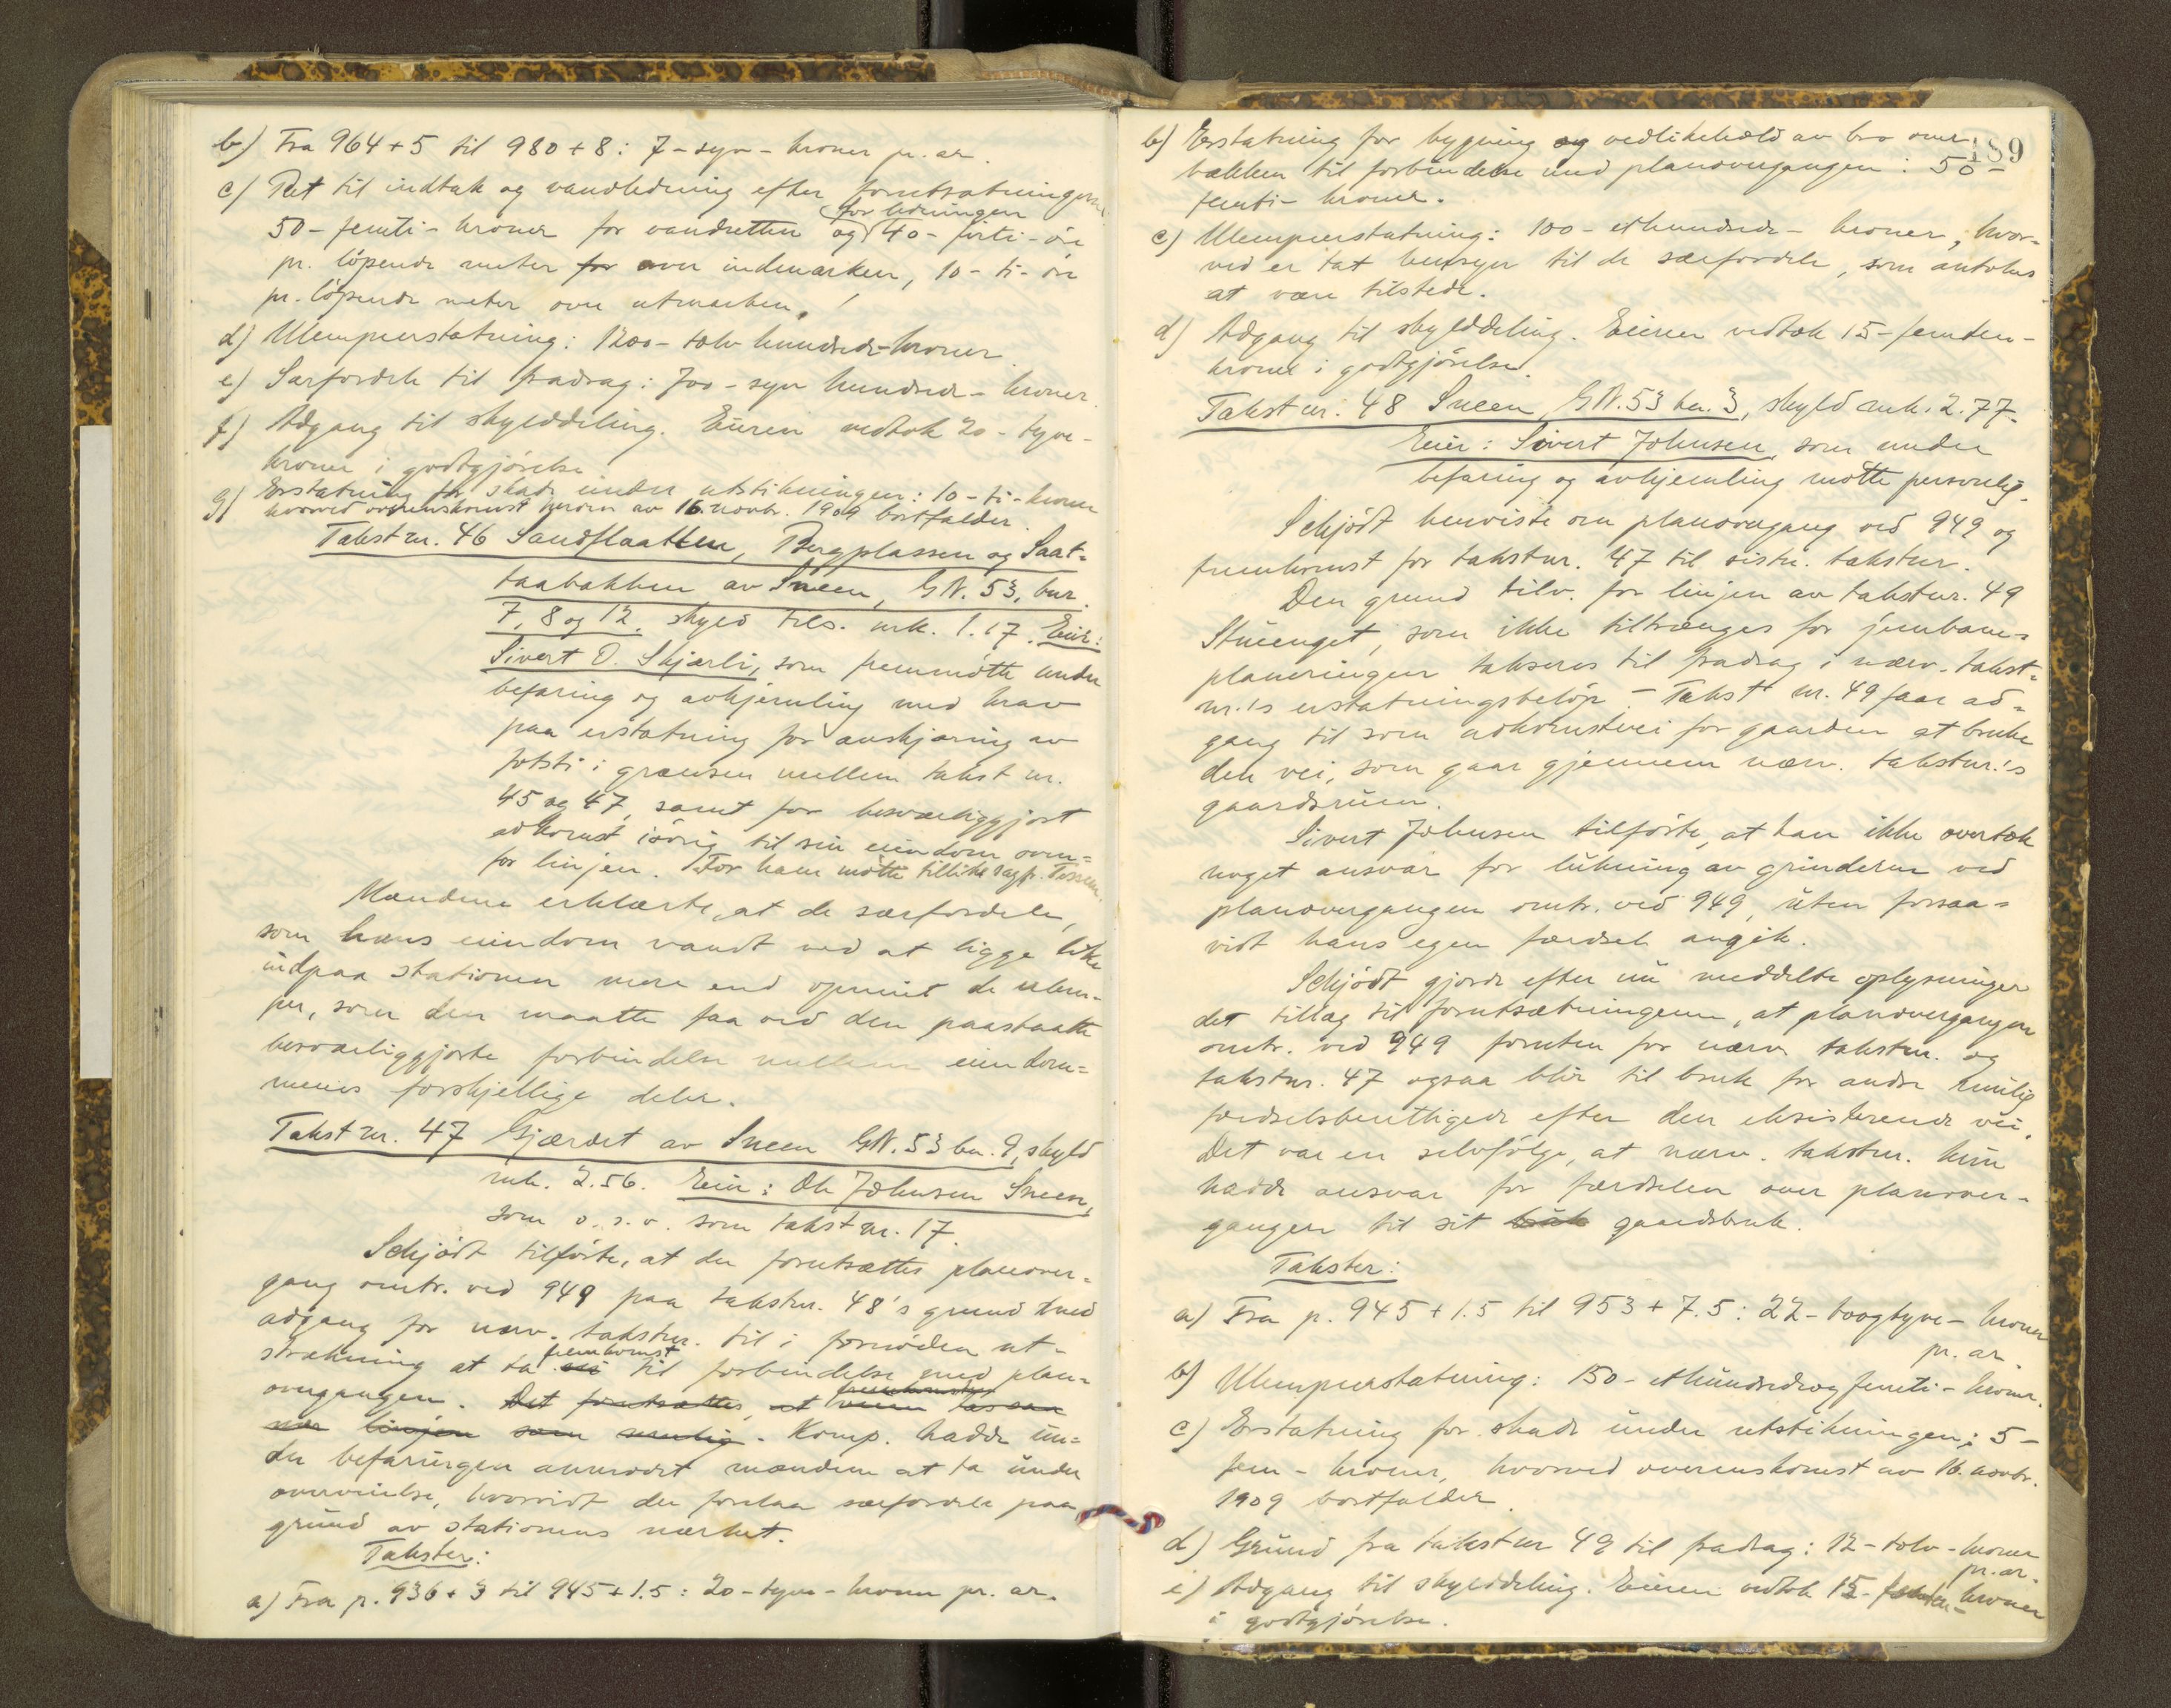 b) Fra 964 + 5 til 980 + 8: 7 - syv - kroner pr. ar.
c) Ret til indtak og vandledning efter forutsætningerne
for ledningen
50 - femti - kroner for vandretten og 40 - førti - øre
pr. löpende meter for over indmarken, 10 - ti - øre
pr. löpende meter over utmarken.
d) Ulempeerstatning: 1200 - tolv hundrede - kroner
e) Særfordele til fradrag: 700 - syv hundrede - kroner.
f) Adgang til skylddeling. Eieren vedtok 20 - tyve -
kroner i godtgjörelse
g) Erstatning for skade under utstikningen: 10 - ti - kroner
hvorved overenskomst herom av 16. novbr. 1909 bortfalder.
Takst nr. 46 Sandflaatten, Bergplassen og Saat-
taabakken av Sneen, GN. 53, bnr.
7, 8 og 12, skyld tils. mrk. 1.17. Eier:
Sivert O. Skjærli, som fremmötte under
befaring og avhjemling med krav
paa erstatning for avskjæring av
fotsti i grænsen mellem takst nr.
45 og 47, samt for besværliggjort
adkomst iövrig til sin eiendom oven-
for linjen. For ham mötte tillike sagf.
Mændene erklærte, at de særfordele,
som hans eiendom vandt ved at ligge like
indpaa stationen mere end opveiet de ulem-
per, som den maatte faa ved den paastaatte
besværliggjorte forbindelse mellem eiendom-
menes forskjellige deler.
Takst nr. 47 Gjærdet av Sneen GN. 53 bn. 9, skyld
mrk. 2.56. Eier: Ole Johnsen Sneen,
som o. s. v. som takst nr. 17.
Schjödt tilförte, at der forutsættes planover-
gang omtr. ved 949 paa takstnr. 48's grund med
adgang for nærv. takstnr. til i fornöden ut-
fremkomst
strækning at ta vei til forbindelse med plan-
fremkomsten
overgangen. Det forutsættes, at veien tas saa
nær linjen som mulig. Komp. hadde un-
der befaringen anmodet mændene at ta under
overveielse, hvorvidt der forelaa særfordele paa
grund av stationens nærhet.
Takster:
a) Fra p. 936 + 3 til 945 + 1.5: 20 - tyve - kroner pr. ar.
189
b) Erstatning for bygning og vedlikehold av bro over
bækken til forbindelse med planovergangen: 50 -
femti - kroner.
c) Ulempeerstatning: 100 - ethundrede - kroner, hvor-
ved er tat hensyn til de særfordele, som antokes
at være tilstede.
d) Adgang til skylddeling. Eieren vedtok 15 - femten -
kroner i godtgjörelse.
Takst nr. 48 Sneen, GN. 53 bn. 3, skyld mrk. 2.77.
Eier: Sivert Johnsen, som under
befaring og avhjemling mötte personlig.
Schjödt henviste om planovergang ved 949 og
fremkomst for takstnr. 47 til sistn. takstnr.
Den grund tilv. for linjen av takstnr. 49
som ikke tiltrænges for jernbane-
planeringen takseres til fradrag i nærv. takst-
nr.'s erstatningsbelöp. - Takst nr. 49 faar ad-
gang til som adkomstvei for gaarden at bruke
den vei, som gaar gjennem nærv. takstnr.'s
gaardsrum.
Sivert Johnsen tilförte, at han ikke overtok
noget ansvar for lukning av grinderne ved
planovergangen omtr. ved 949, uten forsaa-
vidt hans egen færdsel angik.
Schjödt gjorde efter nu meddelte oplysninger
det tillæg til forutsætningerne, at planovergangen
omtr. ved 949 foruten for nærv. takstnr. og
takstnr. 47 ogsaa blir til bruk for andre mulig
færdselsberettigede efter den eksisterende vei.
Det var en selvfölge, at nærv. takstnr. kun
hadde ansvar for færdselen over planover-
gangen til sit bruk gaardsbruk.
Takster:
a) Fra p. 945 + 1.5 til 953 + 7.5: 22 - toogtyve - kroner
pr. ar.
b) Ulempeerstatning: 150 - ethundredeogfemti - kroner.
c) Erstatning for skade under utstikningen: 5 -
fem - kroner, hvorved overenskomst av 16. novbr.
1909 bortfalder.
d) Grund fra takst nr 49 til fradrag: 12 - tolv - kroner
pr. ar.
e) Adgang til skylddeling. Eieren vedtok 15 - femten - kroner
i godtgjörelse.